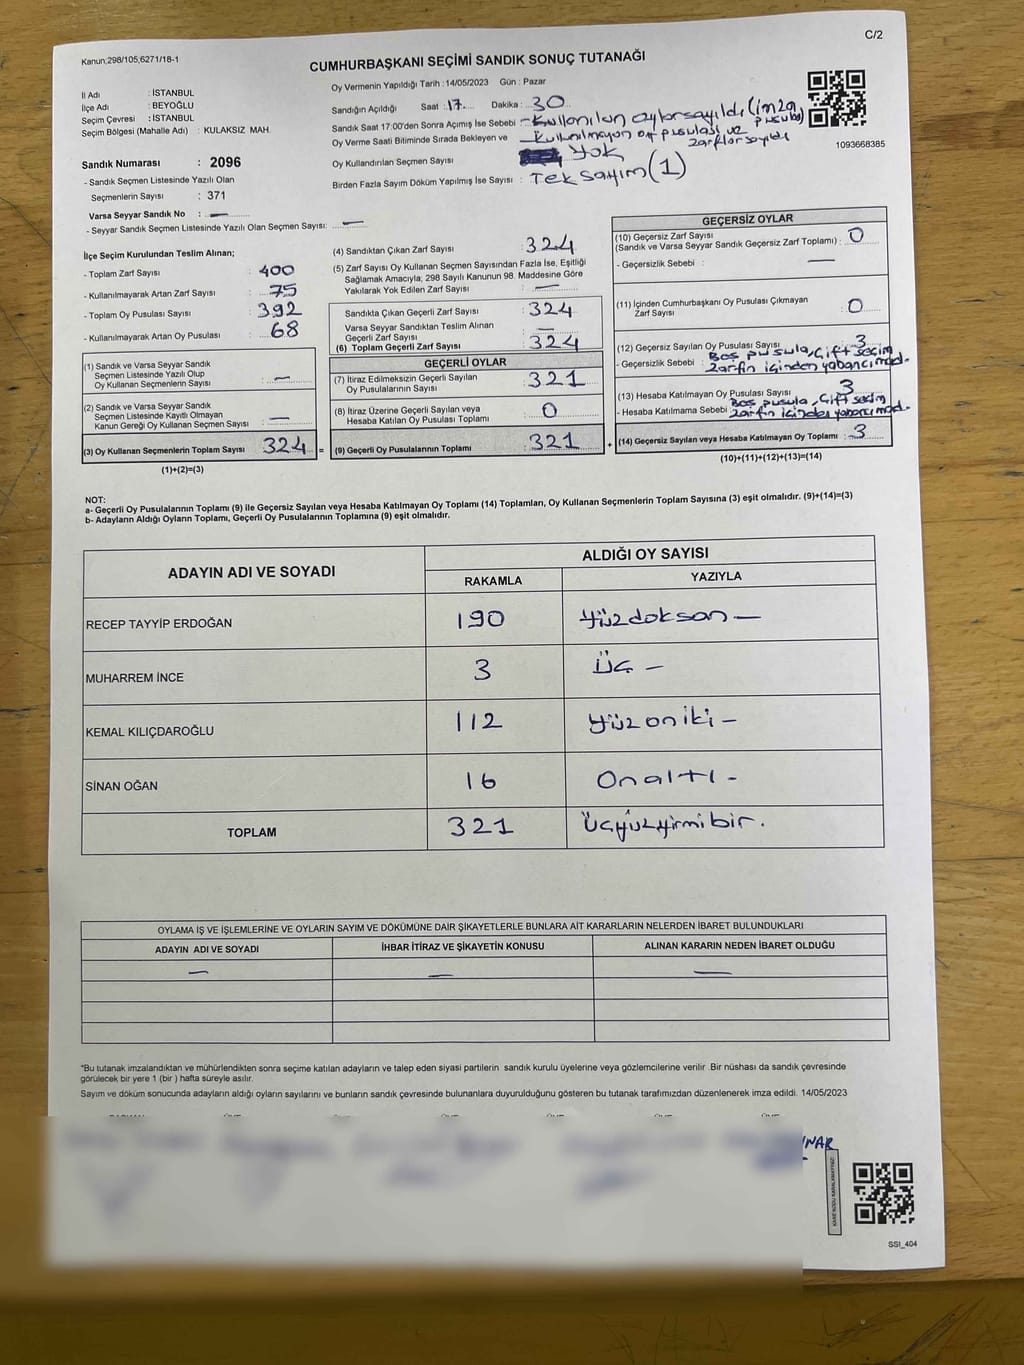 C/2
Kanun,298/105,6271/18-1
CUMHURBAŞKANI SEÇİMİ SANDIK SONUÇ TUTANAĞI
İl Adı : İSTANBUL
İlçe Adı : BEYOĞLU
Seçim Çevresi : İSTANBUL
Seçim Bölgesi (Mahalle Adı) : KULAKSIZ MAH.
Oy Vermenin Yapıldığı Tarih : 14/05/2023 Gün : Pazar
Sandığın Açıldığı Saat : 17 Dakika : 30
Sandık Saat 17:00'den Sonra Açımış İse Sebebi : Kullanılan oylar sayıldı (imza pusula)
Oy Verme Saati Bitiminde Sırada Bekleyen ve Kullanılmayan oy pusulası ve zarflar sayıldı
Oy Kullandırılan Seçmen Sayısı Yok
Birden Fazla Sayım Döküm Yapılmış İse Sayısı : Tek sayım (1)
1093668385
Sandık Numarası : 2096
- Sandık Seçmen Listesinde Yazılı Olan
Seçmenlerin Sayısı : 371
Varsa Seyyar Sandık No : —
- Seyyar Sandık Seçmen Listesinde Yazılı Olan Seçmen Sayısı: —
İlçe Seçim Kurulundan Teslim Alınan;
- Toplam Zarf Sayısı : 400
- Kullanılmayarak Artan Zarf Sayısı : 75
- Toplam Oy Pusulası Sayısı : 392
- Kullanılmayarak Artan Oy Pusulası : 68
(1) Sandık ve Varsa Seyyar Sandık
Seçmen Listesinde Yazılı Olup
Oy Kullanan Seçmenlerin Sayısı : —
(2) Sandık ve Varsa Seyyar Sandık
Seçmen Listesinde Kayıtlı Olmayan
Kanun Gereği Oy Kullanan Seçmen Sayısı : —
(3) Oy Kullanan Seçmenlerin Toplam Sayısı 324 =
(1)+(2)=(3)
(4) Sandıktan Çıkan Zarf Sayısı : 324
(5) Zarf Sayısı Oy Kullanan Seçmen Sayısından Fazla İse, Eşitliği
Sağlamak Amacıyla; 298 Sayılı Kanunun 98. Maddesine Göre
Yakılarak Yok Edilen Zarf Sayısı : —
Sandıkta Çıkan Geçerli Zarf Sayısı : 324
Varsa Seyyar Sandıktan Teslim Alınan
Geçerli Zarf Sayısı : —
(6) Toplam Geçerli Zarf Sayısı : 324
GEÇERLİ OYLAR
(7) İtiraz Edilmeksizin Geçerli Sayılan
Oy Pusulalarının Sayısı : 321
(8) İtiraz Üzerine Geçerli Sayılan veya
Hesaba Katılan Oy Pusulası Toplamı : 0
(9) Geçerli Oy Pusulalarının Toplamı : 321 +
GEÇERSİZ OYLAR
(10) Geçersiz Zarf Sayısı
(Sandık ve Varsa Seyyar Sandık Geçersiz Zarf Toplamı) : 0
- Geçersizlik Sebebi : —
(11) İçinden Cumhurbaşkanı Oy Pusulası Çıkmayan
Zarf Sayısı : 0
(12) Geçersiz Sayılan Oy Pusulası Sayısı : 3
- Geçersizlik Sebebi : Boş pusula, Çift seçim
zarfın içinden yabancı mad.
(13) Hesaba Katılmayan Oy Pusulası Sayısı : 3
- Hesaba Katılmama Sebebi : Boş pusula, Çift seçim
zarfın içinden yabancı mad.
(14) Geçersiz Sayılan veya Hesaba Katılmayan Oy Toplamı : 3
(10)+(11)+(12)+(13)=(14)
NOT:
a- Geçerli Oy Pusulalarının Toplamı (9) ile Geçersiz Sayılan veya Hesaba Katılmayan Oy Toplamı (14) Toplamları, Oy Kullanan Seçmenlerin Toplam Sayısına (3) eşit olmalıdır. (9)+(14)=(3)
b- Adayların Aldığı Oyların Toplamı, Geçerli Oy Pusulalarının Toplamına (9) eşit olmalıdır.
ADAYIN ADI VE SOYADI
ALDIĞI OY SAYISI
RAKAMLA YAZIYLA
RECEP TAYYİP ERDOĞAN 190 Yüzdoksan —
MUHARREM İNCE 3 Üç —
KEMAL KILIÇDAROĞLU 112 Yüzoniki —
SİNAN OĞAN 16 Onaltı -
TOPLAM 321 Üçyüzyirmibir.
OYLAMA İŞ VE İŞLEMLERİNE VE OYLARIN SAYIM VE DÖKÜMÜNE DAİR ŞİKAYETLERLE BUNLARA AİT KARARLARIN NELERDEN İBARET BULUNDUKLARI
ADAYIN ADI VE SOYADI İHBAR İTİRAZ VE ŞİKAYETİN KONUSU ALINAN KARARIN NEDEN İBARET OLDUĞU
— — —
*Bu tutanak imzalandıktan ve mühürlendikten sonra seçime katılan adayların ve talep eden siyasi partilerin sandık kurulu üyelerine veya gözlemcilerine verilir .Bir nüshası da sandık çevresinde
görülecek bir yere 1 (bir ) hafta süreyle asılır.
Sayım ve döküm sonucunda adayların aldığı oyların sayılarını ve bunların sandık çevresinde bulunanlara duyurulduğunu gösteren bu tutanak tarafımızdan düzenlenerek imza edildi. 14/05/2023
SSI_404